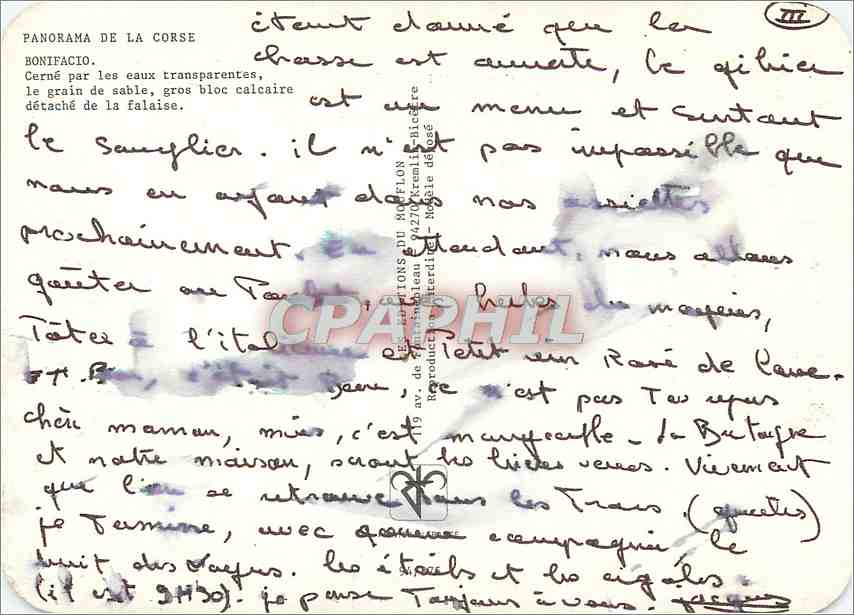 III
PANORAMA DE LA CORSE
BONIFACIO.
Cerné par les eaux transparentes,
le grain de sable, gros bloc calcaire
détaché de la falaise.
étant donné que la
chasse est ouverte, le gibier
est au menu et surtout
le sanglier. il n'est pas impossible que
nous en ayons dans nos assiettes
prochainement. En attendant, nous allons
goûter au aux herbes du maquis,
à l'italienne et Petit vin Rosé de
ce n'est pas Ton repas
chère maman, mais, c'est mangeable - La Bretagne
et notre maison, seront les bienvenues. Vivement
que l'on se retrouve tous les Trois. (quatre)
je Termine, avec comme compagnie, le
bruit des vagues. les étoiles et les cigales
(il est 21H30). je pense Toujours à vous. Jacques
LES EDITIONS DU MOUFLON
119 av. de Fontainebleau 94270 Kremlin-Bicêtre
Reproduction interdite - Modèle déposé
CPAPHIL